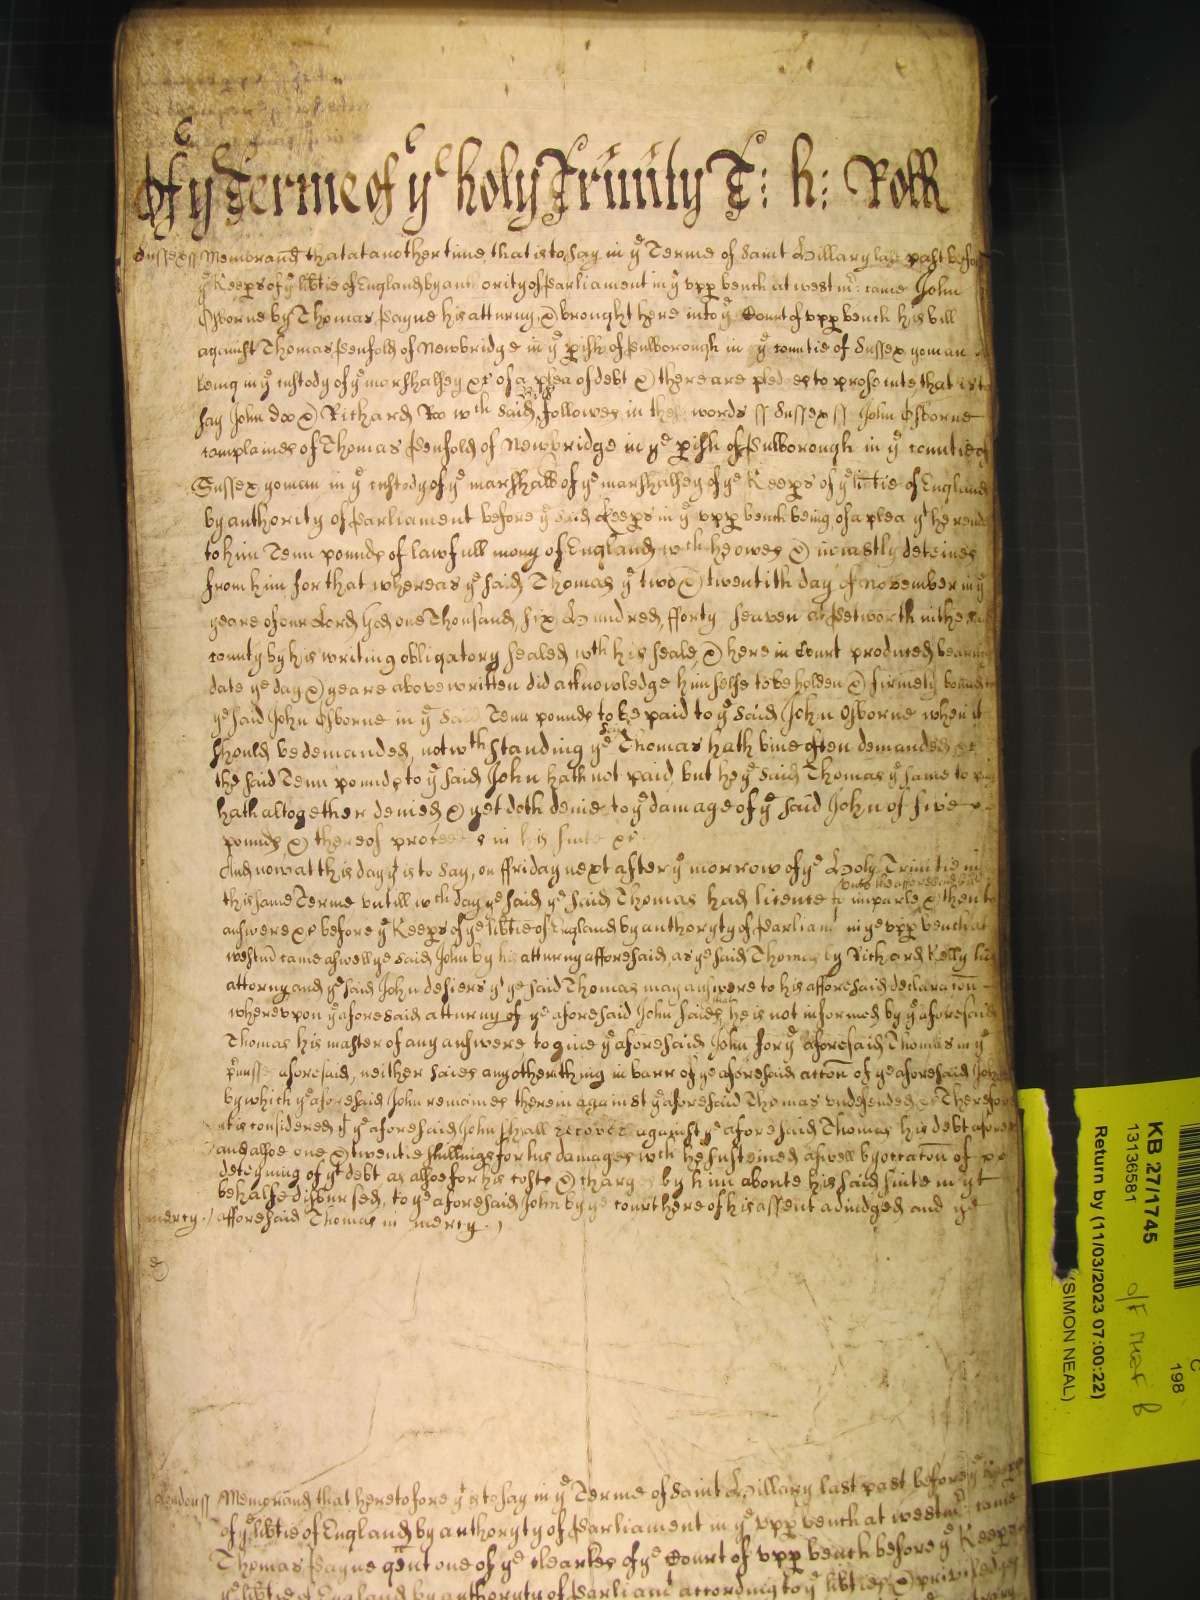 Of ye Terme of ye holy Trinity T: h: Roll
Sussex ss Memorand that at another time, that is to say in ye Terme of Saint Hillary last past before
ye Keeps of ye libtie of England by authority of Parliament in ye upp bench at westmr: came John
Osborne by Thomas Payne his atturny, & brought here into ye Court of upp bench his bill
against Thomas Penfold of Newbridge in ye pish of Pulborough in ye countie of Sussex yoman
being in ye custody of ye marshalsey &c of a plea of debt & there are pledges to prosecute that is to
say John doo & Richard Roo wch said followes in these words ss Sussex ss John Osborne
complaines of Thomas Penfold of Newbridge in ye pish of Pulborough in ye countie of
Sussex yoman in ye custody of ye marshall of ye marshalsey of ye Keeps of ye libtie of England
by authority of Parliament before ye said Keeps in ye upp bench being, of a plea yt he render
to him Tenn pounds of lawfull mony of England wch he owes & uniustly deteines
from him for that whereas ye said Thomas ye two & twentith day of November in ye
yeare of our Lord God one Thousand, six Hundred, fforty seaven at Petworth in the said
county by his writing obligatory sealed wth his seale, & here in Court produced bearing
date ye day & yeare above written did acknowledge himselfe to be holden & firmely bound to
ye said John Osborne in ye said Tenn pounds to be paid to ye said John Osborne when it
should be demanded, notwthstanding ye said Thomas hath bine often demanded &c
the said Tenn pounds to ye said John hath not paid, but he ye said Thomas ye same to pay
hath altogether denied & yet doth denie to ye damage of ye said John of five
pounds & thereof proteeds in his suite &c
And now at this day yt is to say, on ffriday next after ye morrow of ye Holy Trinitie in
this same Terme untill wch day ye said ye said Thomas had licence to imparle & then to
answere &c before ye Keeps of ye libtie of England by authoryty of Parliamt in ye upp bench at
westmr came aswell ye said John by his atturny afforesaid, as ye said Thomas by Richard Kelly his
attorny and ye said John desiers yt ye said Thomas may answere to his afforesaid declaracon
whereupon ye aforesaid atturny of ye aforesaid John saies that he is not informed by ye aforesaid
Thomas his master of any answere to give ye aforesaid John for ye aforesaid Thomas in ye
pmisses aforesaid, neither saies any other thing in barr of ye aforesaid accon of ye aforesaid John
by which ye aforesaid John remaines therein against ye aforesaid Thomas undefended &c Therefore
it is considered yt ye aforesaid John shall recover against ye aforesaid Thomas his debt aforesaid
and alsoe one & twentie shillings for his damages wch he susteined aswell by occacon of ye
deteyning of yt debt as alsoe for his costs & charges by him aboute his said suite in yt
behalfe disbursed, to ye aforesaid John by ye court here of his assent adiudged and ye
mercy afforesaid Thomas in mercy
London ss Memorand that heretofore yt is to say in ye Terme of Saint Hillary last past before ye Keeps
of ye libtie of England by authoryty of Parliament in ye upp bench at westmr came
Thomas Payne gent one of ye clearkes of ye Court of upp bench before ye Keeps
ye libtie of England by authoryty of Parliamt according to ye libties & priviledges
KB 27/1745
13136581
Return by (11/03/2023 07:00:22)
(SIMON NEAL)
198
C